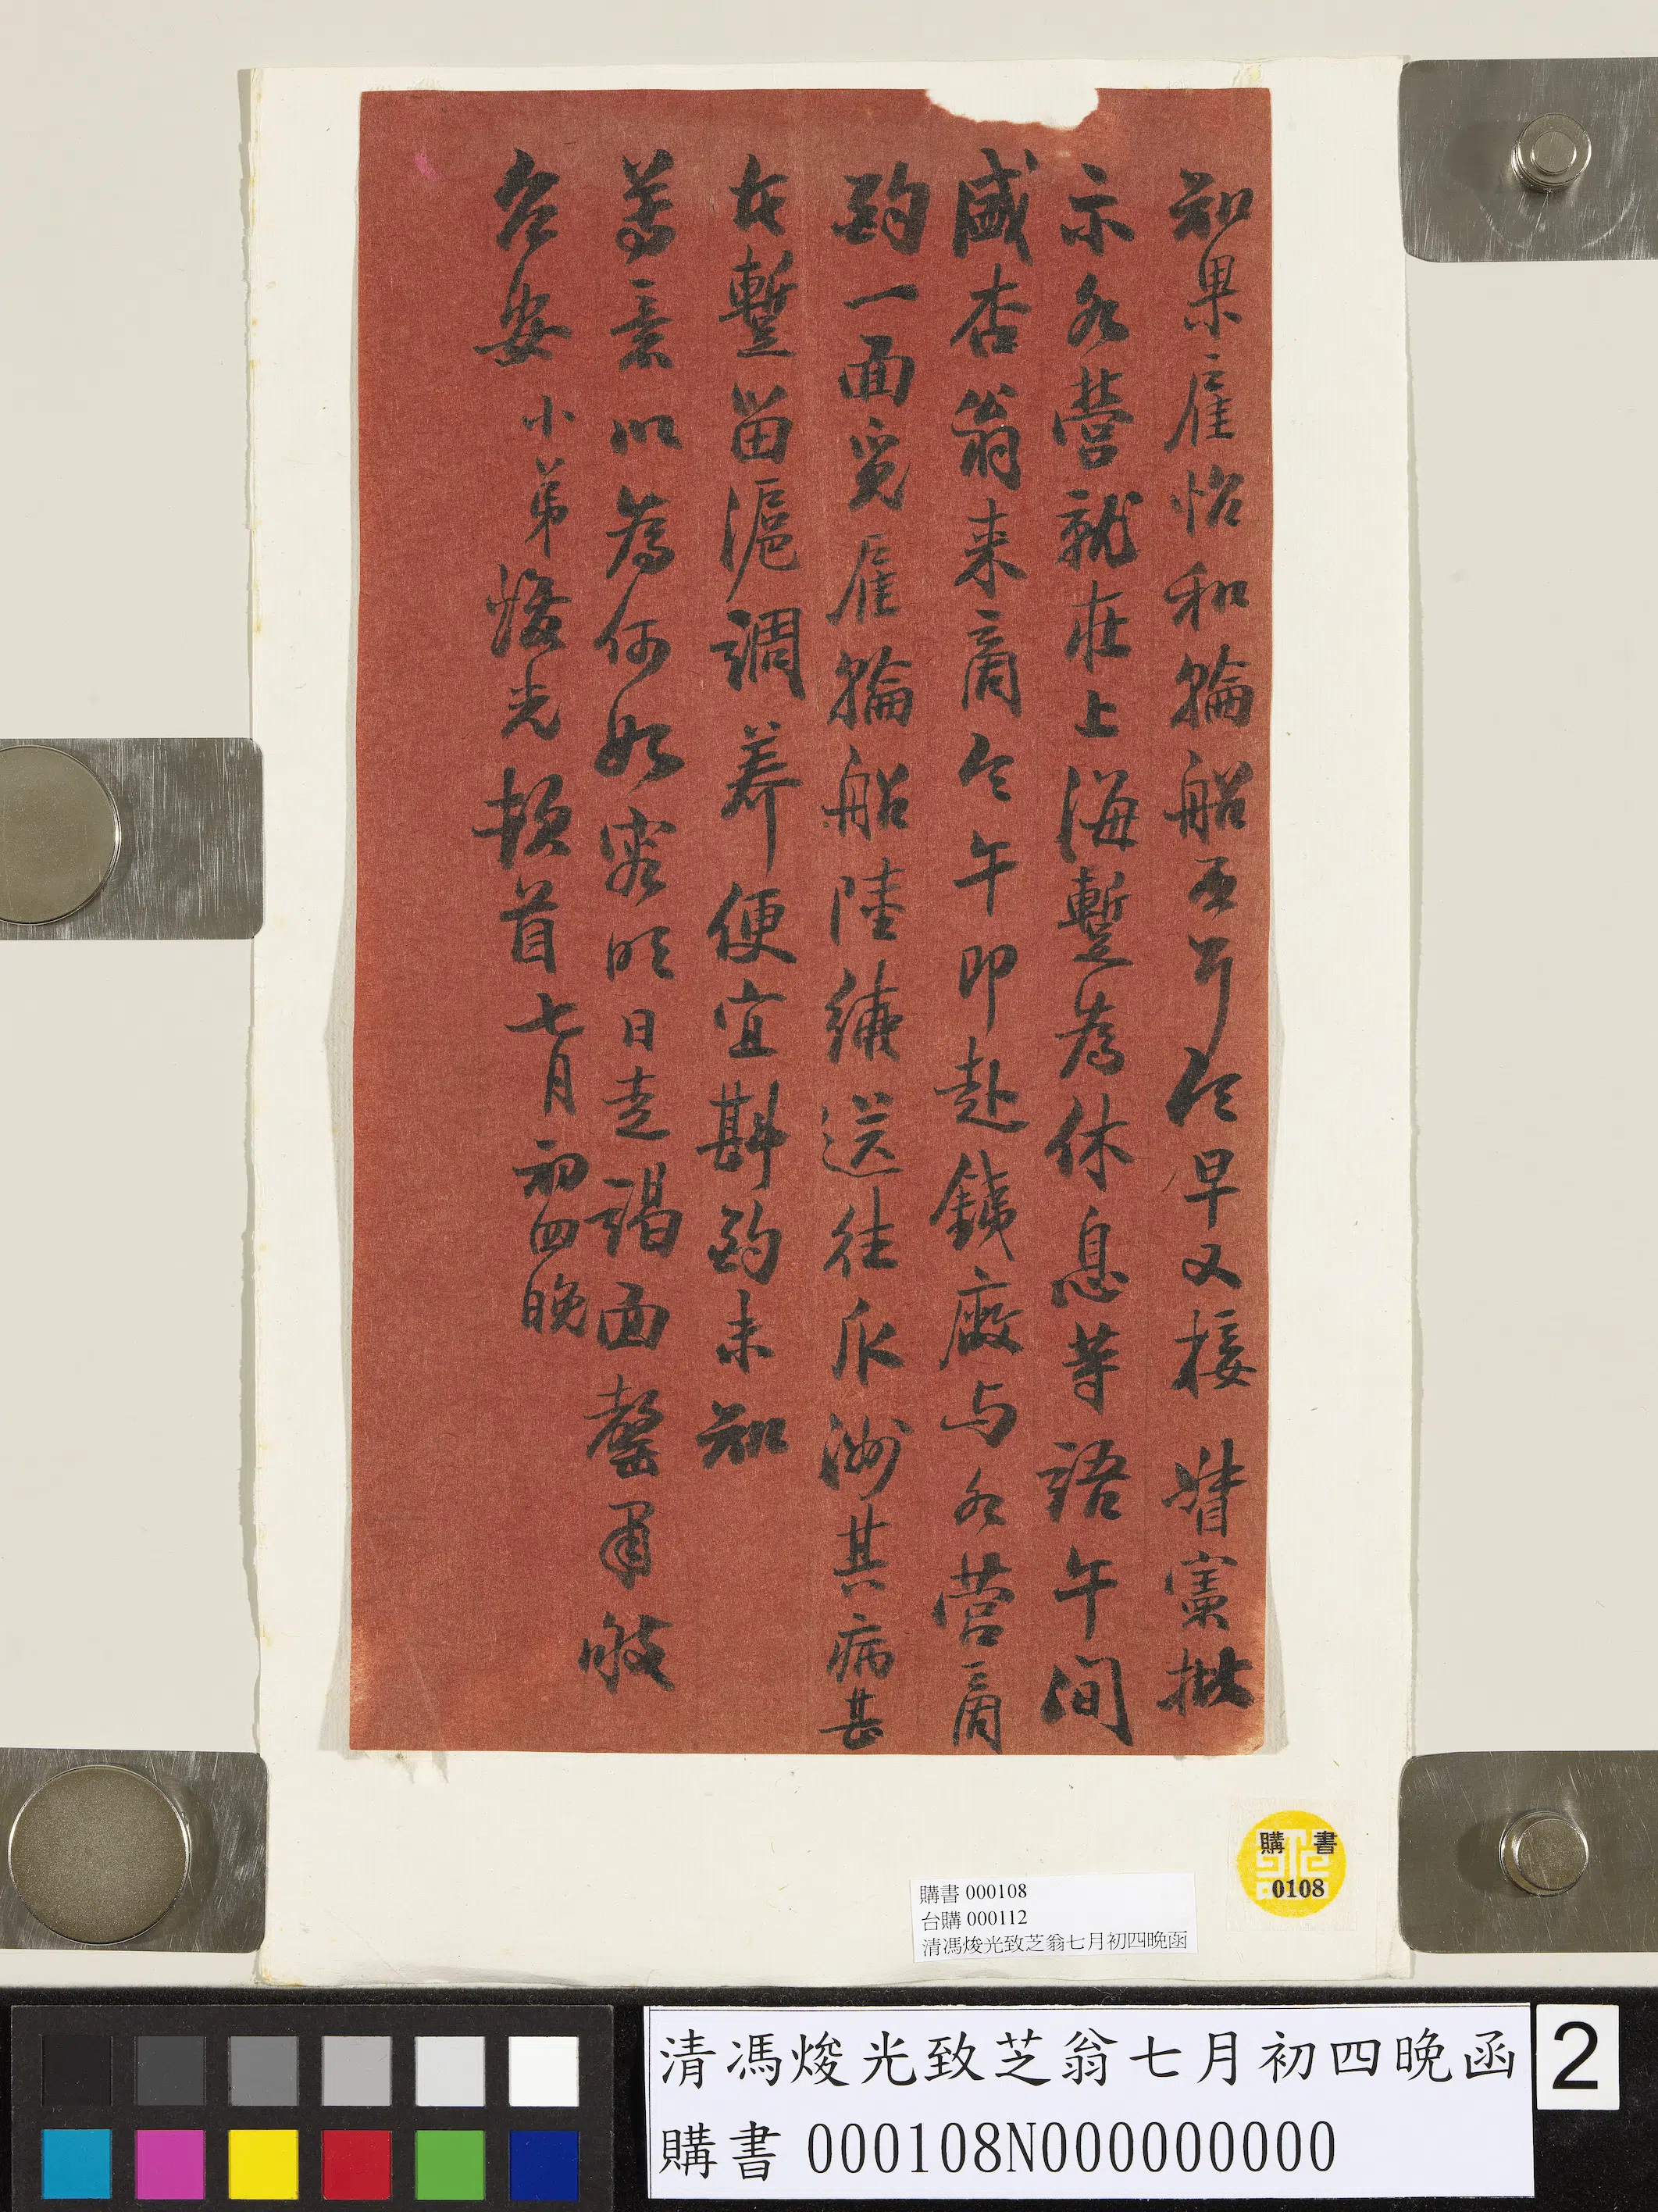 知果雇怡和輪船否耳今早又接 督憲批
示水營就在上海暫為休息等語午間
盛杏翁来商今午即赴鐵廠与水營商
酌一面覓雇輪船陸續送往瓜洲其病甚
在暫留滬調养便宜斟酌未知
尊意以為何如容明日走謁面罄再
久安 小弟焌光頓首七月初四晚
購書
0108
購書 000108
台購 000112
清馮焌光致芝翁七月初四晚函
清馮焌光致芝翁七月初四晚函
購書 000108N000000000
2